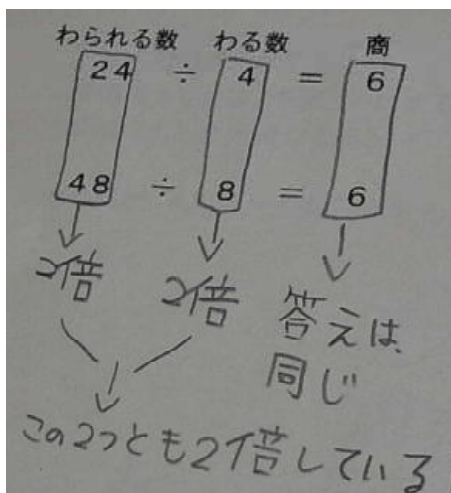 わられる数 わる数 商
24 ÷ 4 = 6
48 ÷ 8 = 6
2倍 2倍 答えは、
同じ
この2つとも2倍している